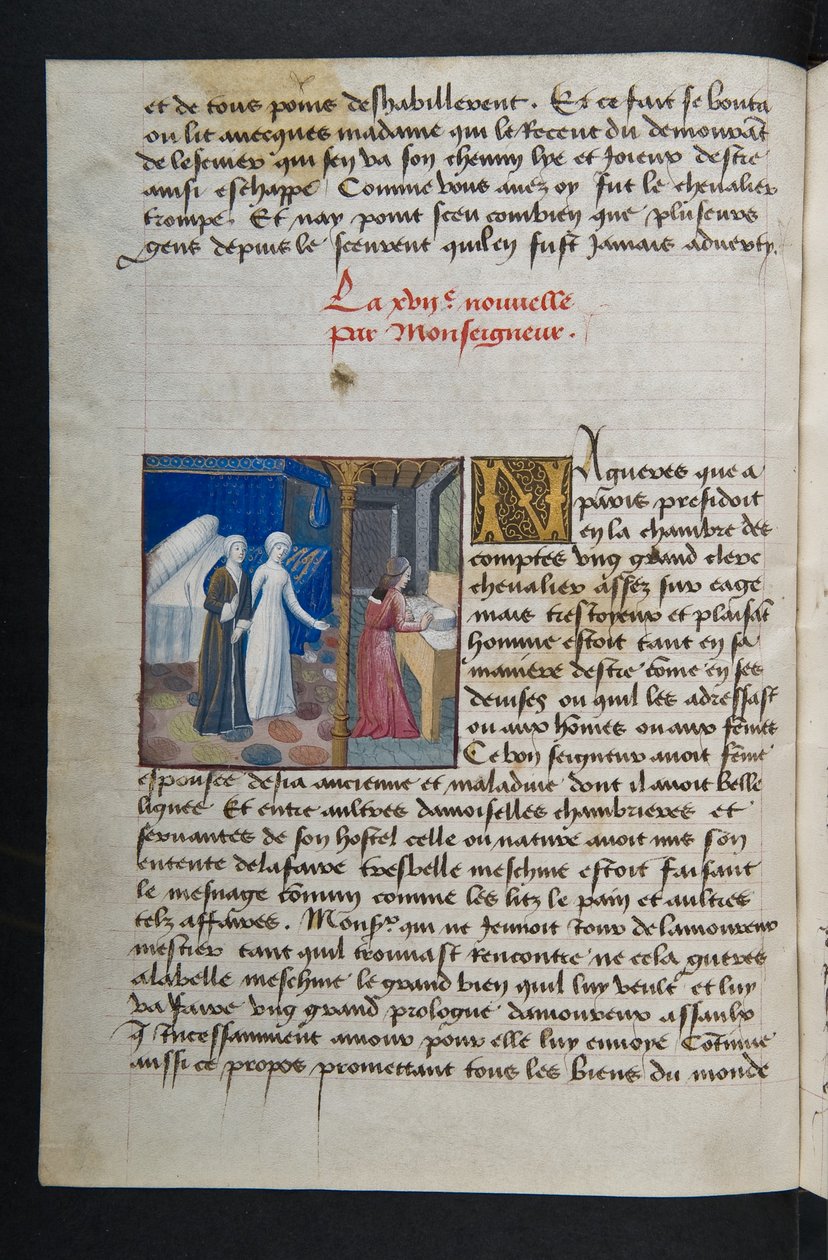 et de tous poins deshabillerent. Et ce fait se bouta
ou lit avecques madame qui le Recent du demourāt
de lescuier qui sen va son chemin lye et Joieux destre
ainsi eschappé Comme vous avez oy fut le chevalier
trompé. Et nay point sceu combien que pluseurs
gens depuis le sceurent quil en fust Jamais adverty.
La xvijᵉ nouvelle
par Monseigneur.
Nagueres que a
paris presidoit
en la chambre des
comptes ung grand clerc
chevalier assez sur eage
mais tresioyeux et plaisāt
homme estoit tant en sa
maniere destre cōme en ses
devises ou quil les adressast
ou aux hōmes ou aux fēmes
Ce bon seigneur avoit fēme
espousee desia ancienne et maladive dont il avoit belle
lignee Et entre aultres damoiselles chambrieres et
servantes de son hostel celle ou nature avoit mis son
entente de la faire tresbelle meschine estoit faisant
le mesnage cōmun comme les litz le pain et aultres
telz affaires. Monsʳ qui ne Jeunoit Jour de lamoureux
mestier tant quil trouvast Rencontre ne cela gueres
a la belle meschine le grand bien quil luy veult et luy
va faire ung grand prologue damoureux assaulx
q̄ Incessamment amour pour elle luy envoye Cōtinue
aussi ce propos promettant tous les biens du monde